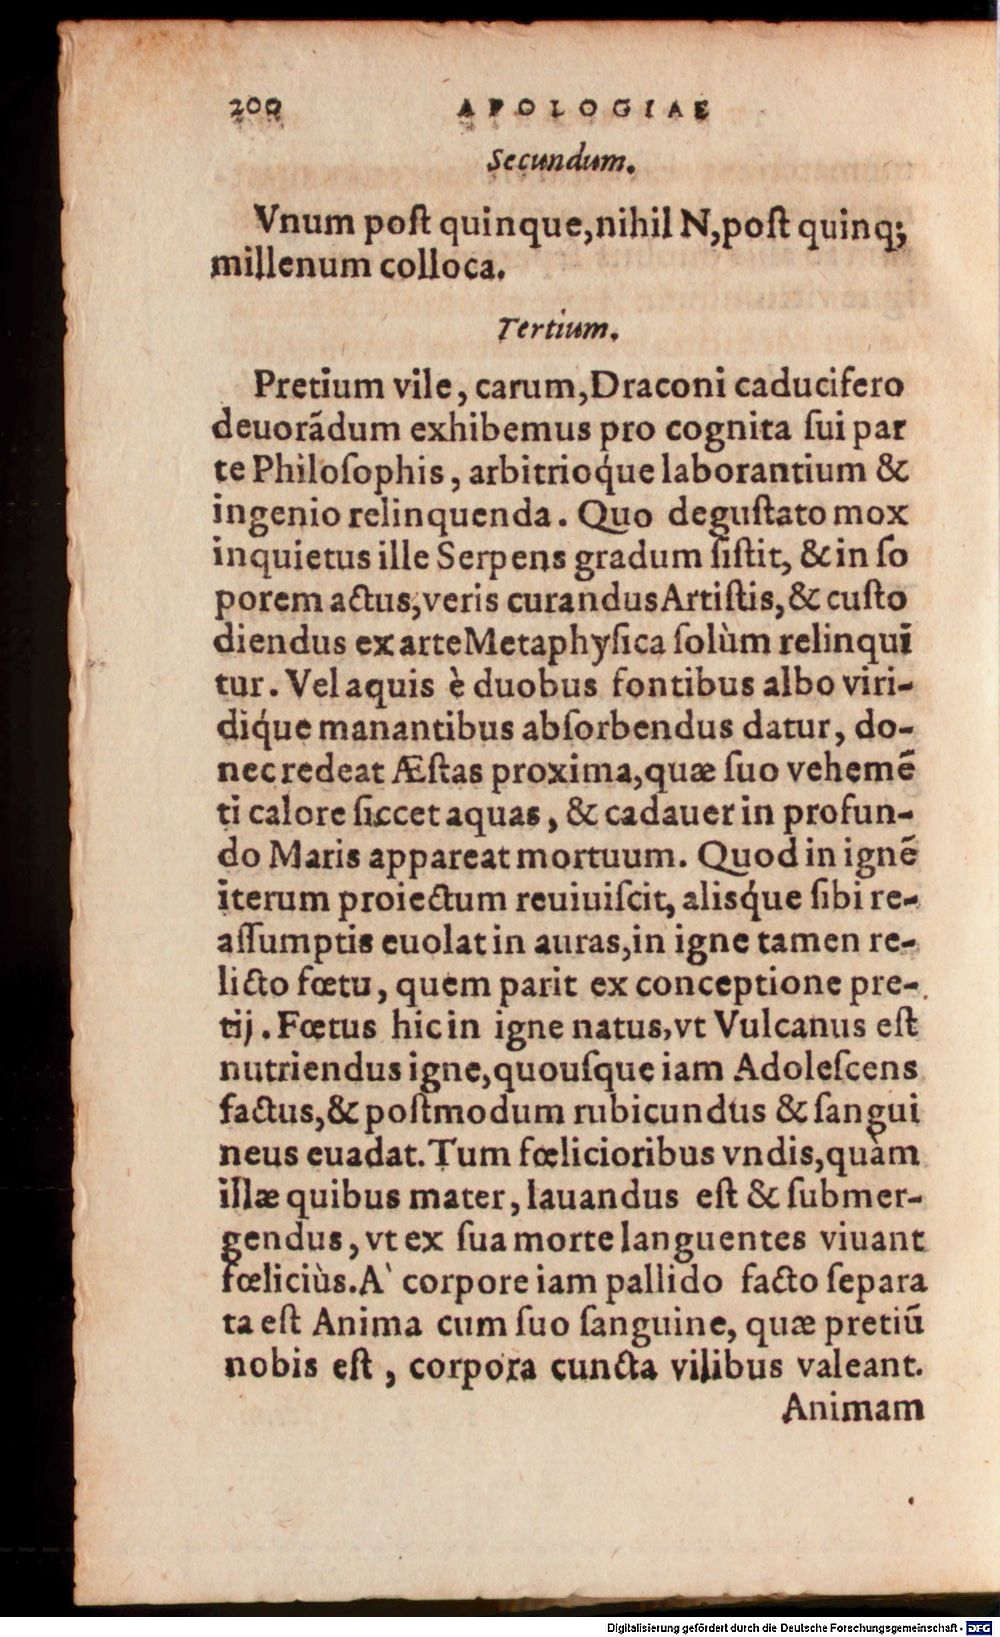 200 APOLOGIAE
Secundum.
Vnum poſt quinque,nihil N,poſt quinq;
millenum colloca.
Tertium.
Pretium vile, carum,Draconi caducifero
deuorãdum exhibemus pro cognita ſui par
te Philoſophis, arbitrioq́ue laborantium &
ingenio relinquenda. Quo deguſtato mox
inquietus ille Serpens gradum ſiſtit, & in ſo
porem actus,veris curandus Artiſtis,& cuſto
diendus ex arte Metaphyſica ſolùm relinqui
tur. Vel aquis è duobus fontibus albo viri-
diq́ue manantibus abſorbendus datur, do-
nec redeat Æſtas proxima,quæ ſuo vehemẽ
ti calore ſiccet aquas, & cadauer in profun-
do Maris appareat mortuum. Quod in ignẽ
iterum proiectum reuiuiſcit, alisq́ue ſibi re-
aſſumptis euolat in auras,in igne tamen re-
licto fœtu, quem parit ex conceptione pre-
tij. Fœtus hic in igne natus,vt Vulcanus eſt
nutriendus igne,quouſque iam Adoleſcens
factus,& poſtmodum rubicundus & ſangui
neus euadat. Tum fœlicioribus vndis,quàm
illæ quibus mater, lauandus eſt & ſubmer-
gendus, vt ex ſua morte languentes viuant
fœliciùs. A` corpore iam pallido facto ſepara
ta eſt Anima cum ſuo ſanguine, quæ pretiũ
nobis eſt, corpora cuncta vilibus valeant.
Animam
Digitalisierung gefördert durch die Deutsche Forschungsgemeinschaft - DFG